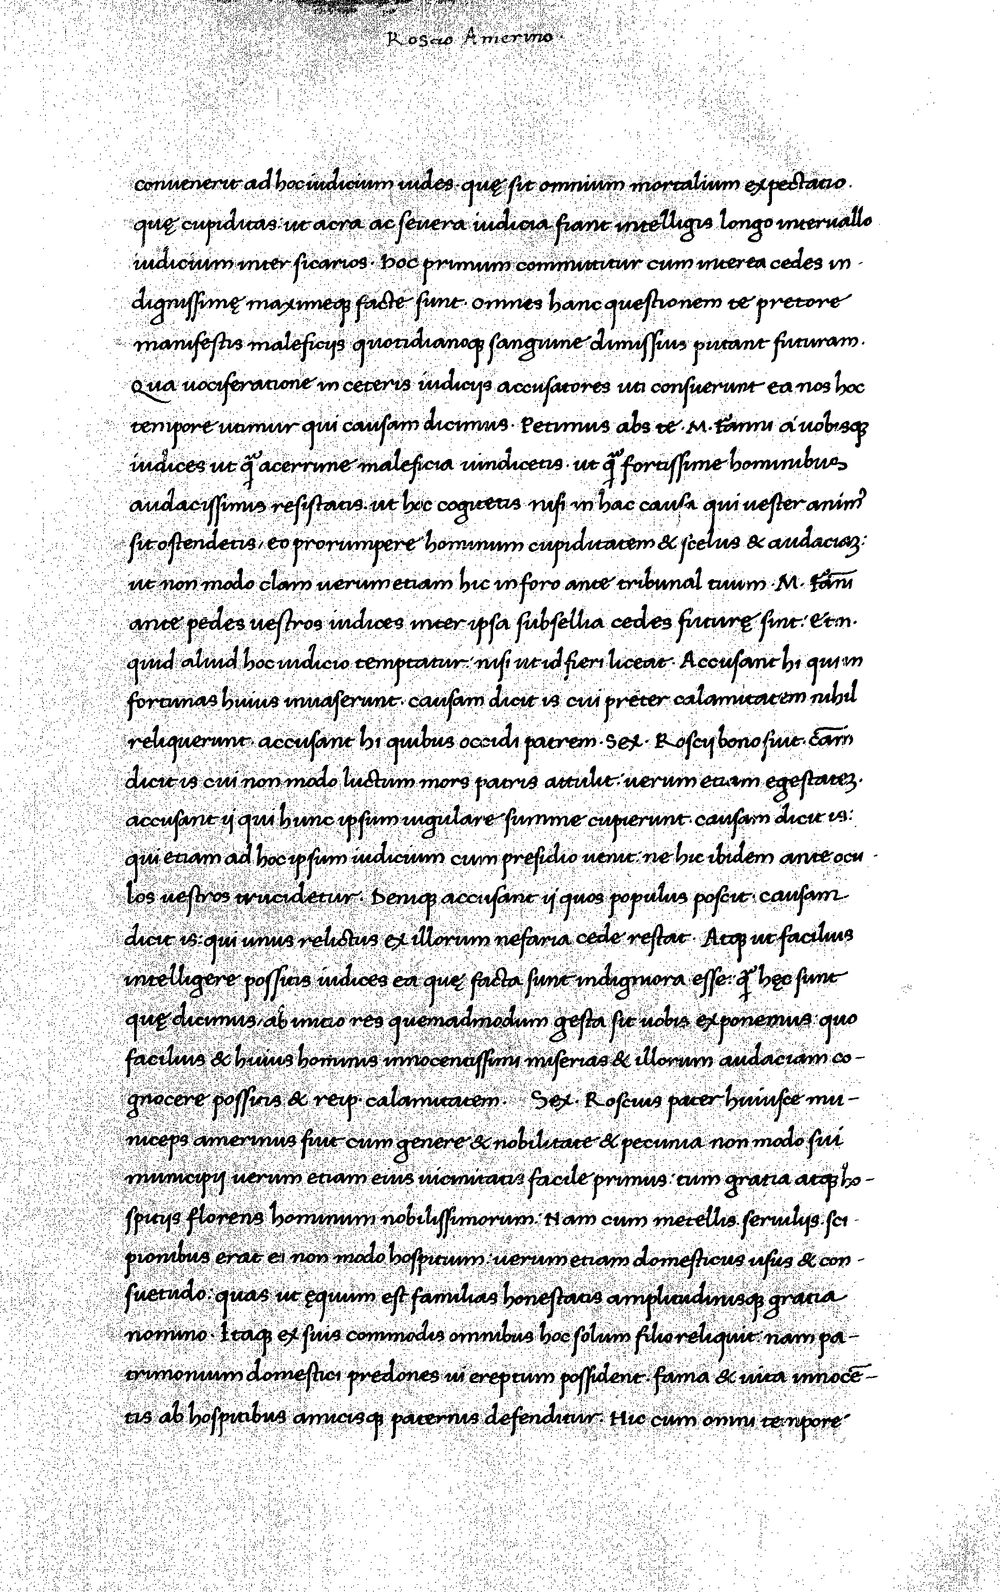 Roscio Amerino.
conuenerit ad hoc iudicium uides. quę sit omnium mortalium expectatio.
quę cupiditas: ut acra ac seuera iudicia fiant intelligis longo interuallo
iudicium inter sicarios. hoc primum committitur cum interea cedes in-
dignissimę maximeqꝫ facte sunt. omnes hanc questionem te pretore
manifestis maleficijs quotidianoqꝫ sanguine dimissius putant futuram.
Qua uociferatione in ceteris iudicijs accusatores uti consuerunt ea nos hoc
tempore utimur qui causam dicimus. Petimus abs te .M. Fanni a uobisqꝫ
iudices ut q̃ acerrime maleficia uindicetis. ut q̃ fortissime hominibus
audacissimis resistatis. ut hoc cogitetis nisi in hac causa qui uester anim᾿
sit ostendetis, eo prorumpere hominum cupiditatem & scelus & audaciaꝫ:
ut non modo clam uerum etiam hic in foro ante tribunal tuum .M. Fãni
ante pedes uestros iudices inter ipsa subsellia cedes futurę sint. Etn.
quid aliud hoc iudicio temptatur: nisi ut id fieri liceat. Accusant hi qui in
fortunas huius inuaserunt. causam dicit is cui preter calamitatem nihil
reliquerunt. accusant hi quibus occidi patrem .Sex. Roscij bono fuit. cãm
dicit is cui non modo luctum mors patris attulit: uerum etiam egestateꝫ.
accusant ij qui hunc ipsum iugulare summe cupierunt. causam dicit is:
qui etiam ad hoc ipsum iudicium cum presidio uenit: ne hic ibidem ante ocu-
los uestros trucidetur. Deniqꝫ accusant ij quos populus poscit. causam
dicit is: qui unus relictus ex illorum nefaria cede restat. Atqꝫ ut facilius
intelligere possitis iudices ea quę facta sunt indigniora esse: q̃ hęc sunt
quę dicimus, ab initio res quemadmodum gesta sit uobis exponemus: quo
facilius & huius hominis innocentissimi miserias & illorum audaciam co-
gnocere possitis & reip. calamitatem. Sex. Roscius pater huiusce mu-
niceps amerinus fuit cum genere & nobilitate & pecunia non modo sui
municipij uerum etiam eius uicinitatis facile primus: tum gratia atqꝫ ho-
spitijs florens hominum nobilissimorum. Nam cum metellis. seruilijs. sci-
pionibus erat ei non modo hospitium: uerum etiam domesticus usus & con-
suetudo: quas ut ęquum est familias honestatis amplitudinisqꝫ gratia
nomino. Itaqꝫ ex suis commodis omnibus hoc solum filio reliquit: nam pa-
trimonium domestici predones ui ereptum possident. fama & uita innocē-
tis ab hospitibus amicisqꝫ paternis defenditur. Hic cum omni tempore